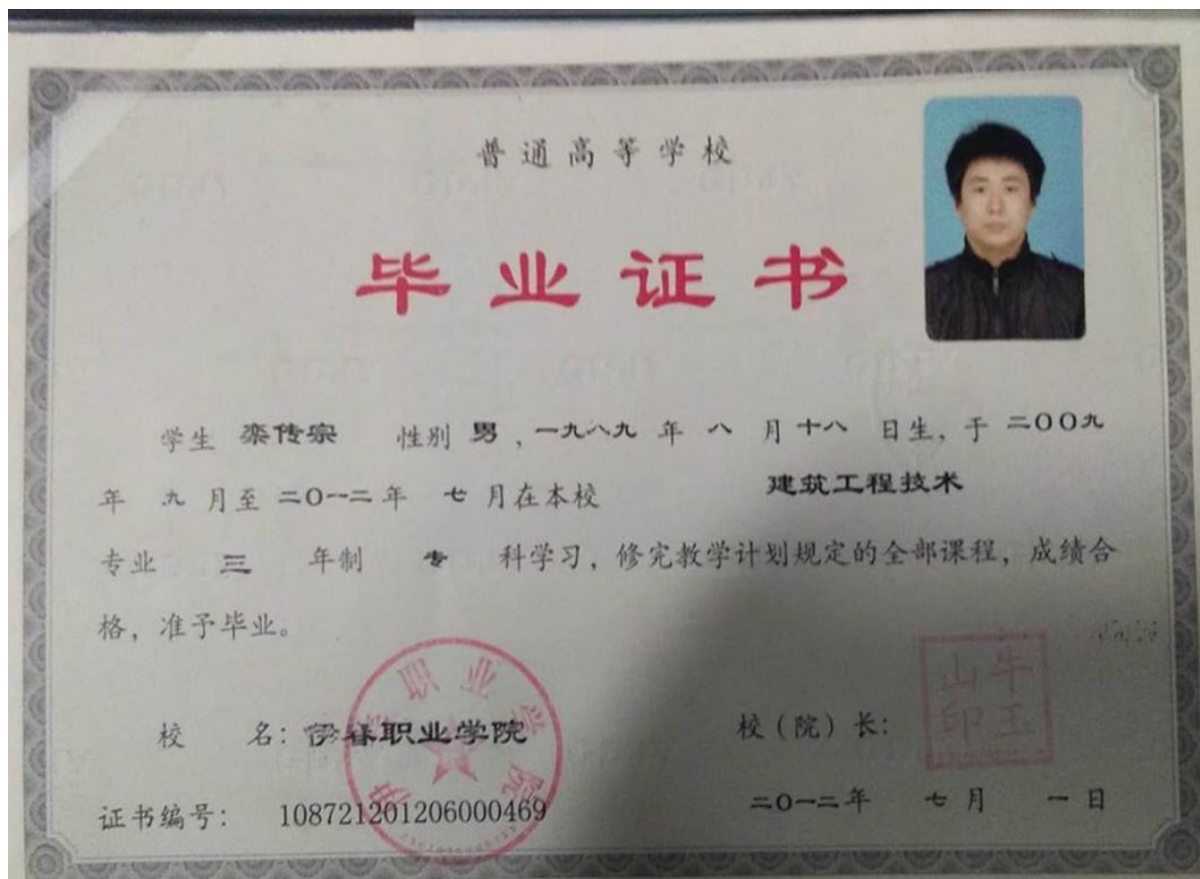 普通高等学校
毕业证书
学生 栾传宗 性别 男，一九八九 年 八 月 十八 日生，于 二〇〇九
年 九 月至 二〇一二 年 七 月在本校 建筑工程技术
专业 三 年制 专 科学习，修完教学计划规定的全部课程，成绩合
格，准予毕业。
校 名：伊春职业学院
校（院）长：
牛玉山印
证书编号： 108721201206000469
二〇一二 年 七 月 一 日
伊春职业学院